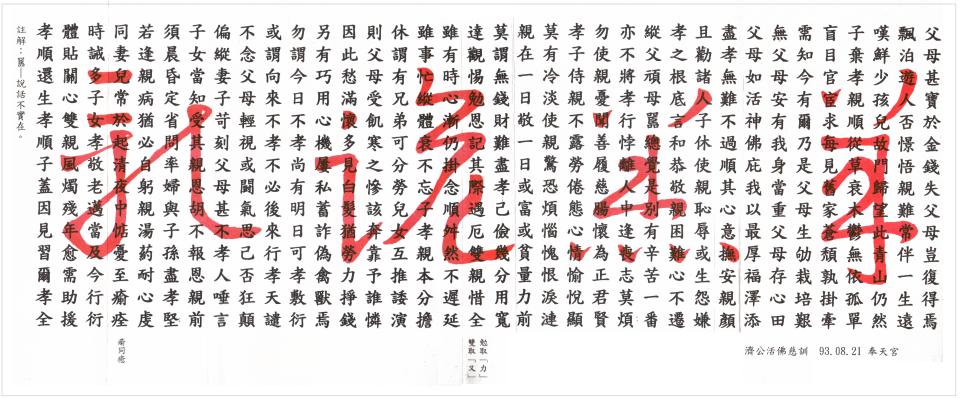 父母甚寶於金錢失父母豈復得焉
飄泊遊人否憬悟親難常伴一生遠
嘆鮮少孩兒故門歸望此青山仍然
子棄孝親順從草衰木鬱無依孤單
盲目官宦求每見舊家蒼頹孰掛牽
需知今有爾乃是父母生劬栽培艱
無父母安有我身當重父母存心田
父母如活神佛庇我以最厚福澤添
盡孝無難不過順其心意撫安親顏
且勸諸人子休使親恥辱或生怨嫌
孝之根底言和恭敬親困難心不遷
縱父頑母嚚總覺是別有辛苦一番
亦不將孝行悖離人中逢喪志莫煩
勿使親憂聞善履慈腸懷為正君賢
孝子侍親不露勞倦態心情愉悅顯
莫有冷淡使親驚恐煩惱愧恨淚漣
在人一日敬一日或富或貧量力前
莫謂無錢財難盡孝己儉幾分用寬
達觀惕勉恩記其際遇厄雙親惜全
雖有時心漸仍掛念順舛然不遲延
雖事忙縱體衰不忘子孝親本分擔
休謂有兄弟可分勞兒女互推諉演
則父母受飢寒之慘該奔靠予誰憐
因此愁滿懷多見白髮猶勞力掙錢
另有巧用心機屢私蓄詐偽禽獸焉
勿謂今日不孝尚有明日可孝敷衍
或謂向來不孝不必後來行孝天譴
不念父母輕視或鬪氣思己否狂顛
偏縱妻子苛刻父母甚不孝人唾言
子女當知受其親恩胡不報恩親前
須晨昏定省問率婦與子孫盡孝堅
若逢親病猶必自躬親湯葯耐心虔
同妻兒常於起清夜中惦憂至瘉痊
時誡多子女孝敬老邁當及今行衍
體貼關心雙親風燭殘年愈需助援
孝順還生孝順子蓋因見習爾孝全
註解：嚚—說話不實在。
濟公活佛慈訓 93.08.21 奉天宮
勉取「力」
雙取「又」
瘉同癒